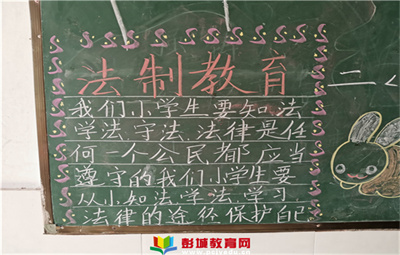 法制教育 二
我们小学生要知法
学法.守法.法律是任
何一个公民都应当
遵守的我们小学生要
从小知法.学法.学习
法律的途径保护自己
彭城教育网